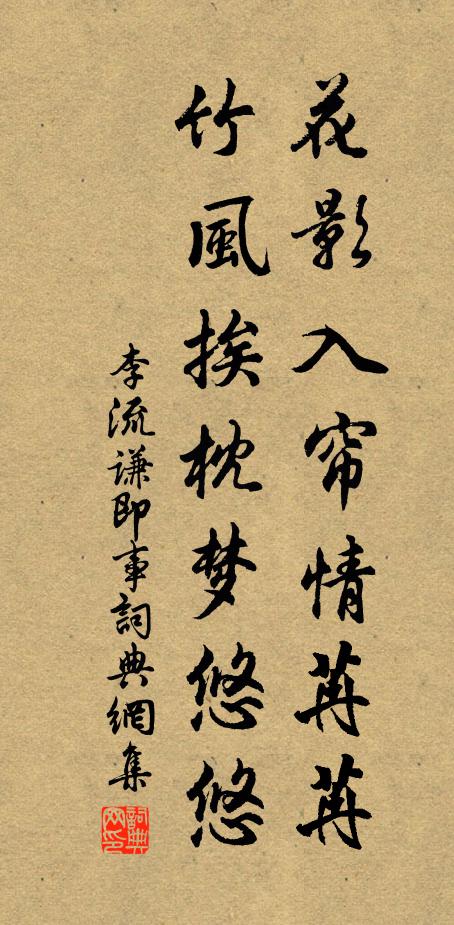 花影入帘情苒苒
竹風挨枕梦悠悠
李流謙即事詞典網集
詞典網印